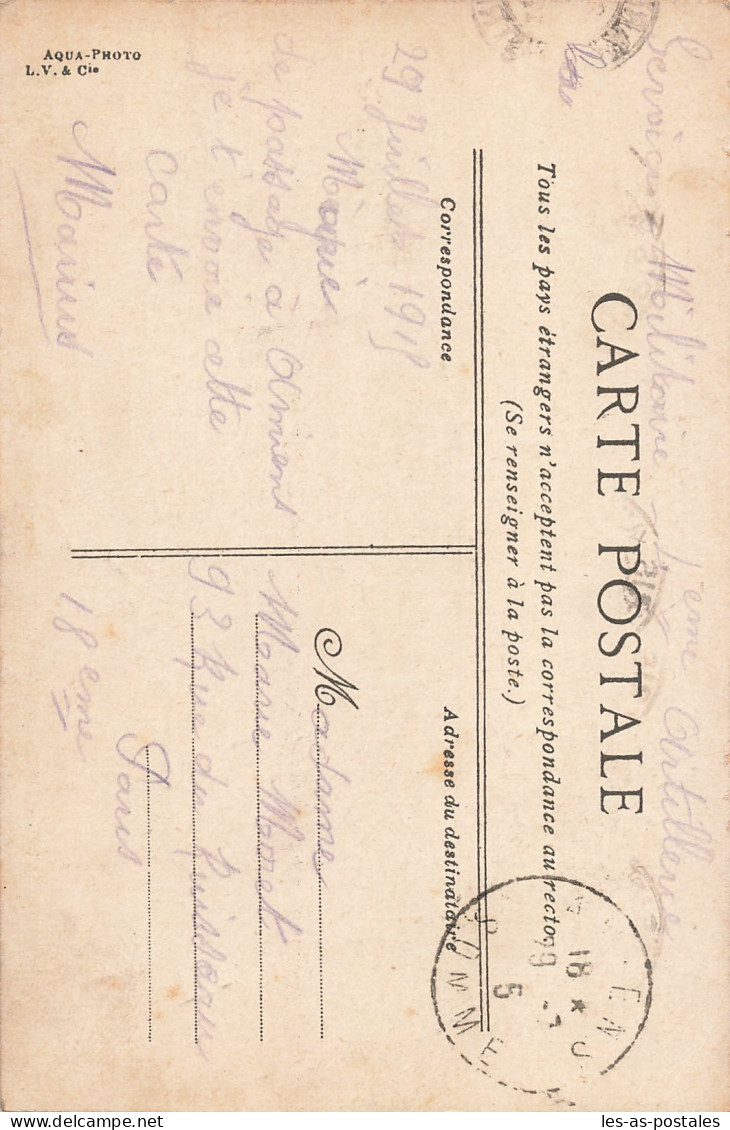 Service Militaire 1ᵉᵐᵉ Artillerie
CARTE POSTALE
Tous les pays étrangers n'acceptent pas la correspondance au recto
(Se renseigner à la poste.)
Correspondance
Adresse du destinataire
29 Juillet 1915
De passage à Amiens
je t'envoie cette
Carte
Marius
Madame
Marie Moret
93 Rue du Ruisseau
Paris
18 eme
AQUA-PHOTO
L. V. & Cie
AMIENS
18 *
SOMME
les-as-postales